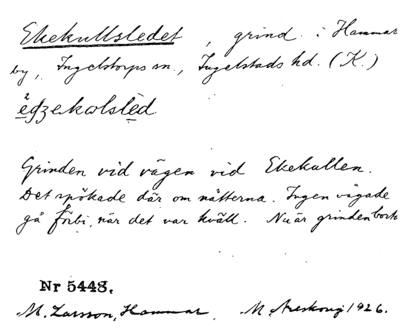 Ekekullsledet, grind i Hammar
by, Ingelstorps sn., Ingelstads hd. (K.)
Grinden vid vägen vid Ekekullen.
Det spökade där om nätterna. Ingen vågade
gå förbi, när det var kväll. Nu är grinden bort.
Nr 5448.
M. Larsson, Hammar M. Areskoug 1926.